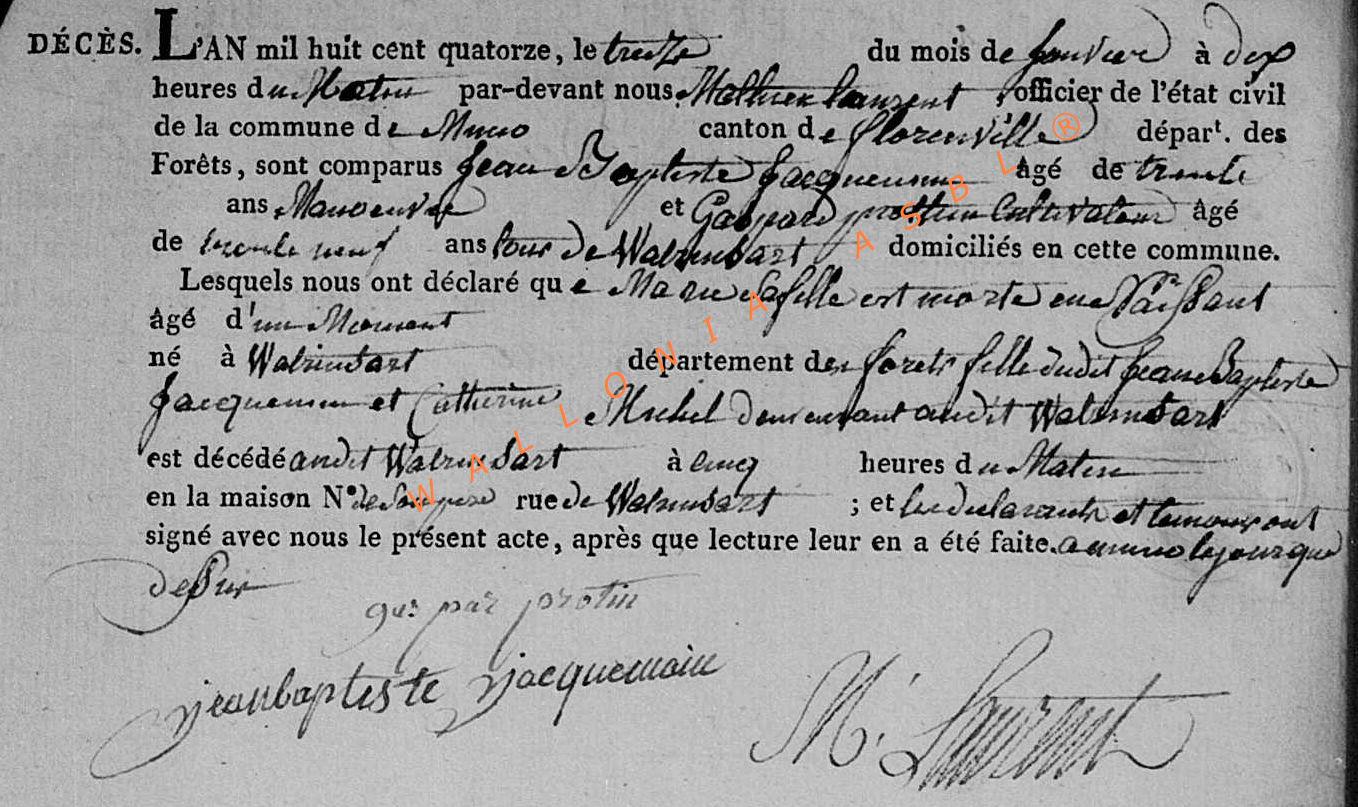 DÉCÈS. L'AN mil huit cent quatorze, le treize du mois de janvier à dix
heures du Matin par-devant nous Mathieu Laurent, officier de l'état civil
de la commune de Muno canton de florenville dépar.t des
Forêts, sont comparus Jean Baptiste Jacquemin âgé de trente
ans Manoeuvre et Gaspard protin Cultivateur âgé
de trente neuf ans tous de Watrinsart domiciliés en cette commune.
Lesquels nous ont déclaré que Marie Sa fille est morte en Naissant
âgé d'un Moment
né à Watrinsart département des forets fille dudit Jean Baptiste
Jacquemin et Catherine Michel demeurant audit Watrinsart
est décédé audit Watrinsart à cinq heures du Matin
en la maison N.o de Son pere rue de Watrinsart ; et les declarants et temoin ont
signé avec nous le présent acte, après que lecture leur en a été faite. a muno le jour que
dessus
gas par protin
jean baptiste Jacquemain
M. Laurent
WALLONIA ASBL ®